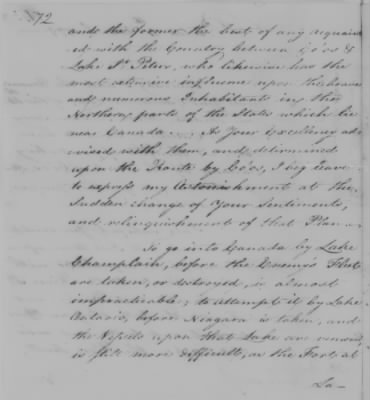 72
and the former the best of any acquaint
ed with the Country between Co'os &
Lake St. Peter, who likewise has the
most extensive influence upon the brave
and numerous Inhabitants in the
Northern parts of the State which lie
near Canada. As Your Excellency ad
vised with them, and determined
upon the Route by Co'os, I beg leave
to express my Astonishment at the
Sudden change of Your Sentiments,
and relinquishment of that Plan
To go into Canada by Lake
Champlain, before the Enemy's Fleet
are taken, or destroyed, is almost
impracticable; to attempt it by Lake
Ontario, before Niagara is taken, and
the Vessels upon that Lake are
is still more difficult, as the Fort at
La-